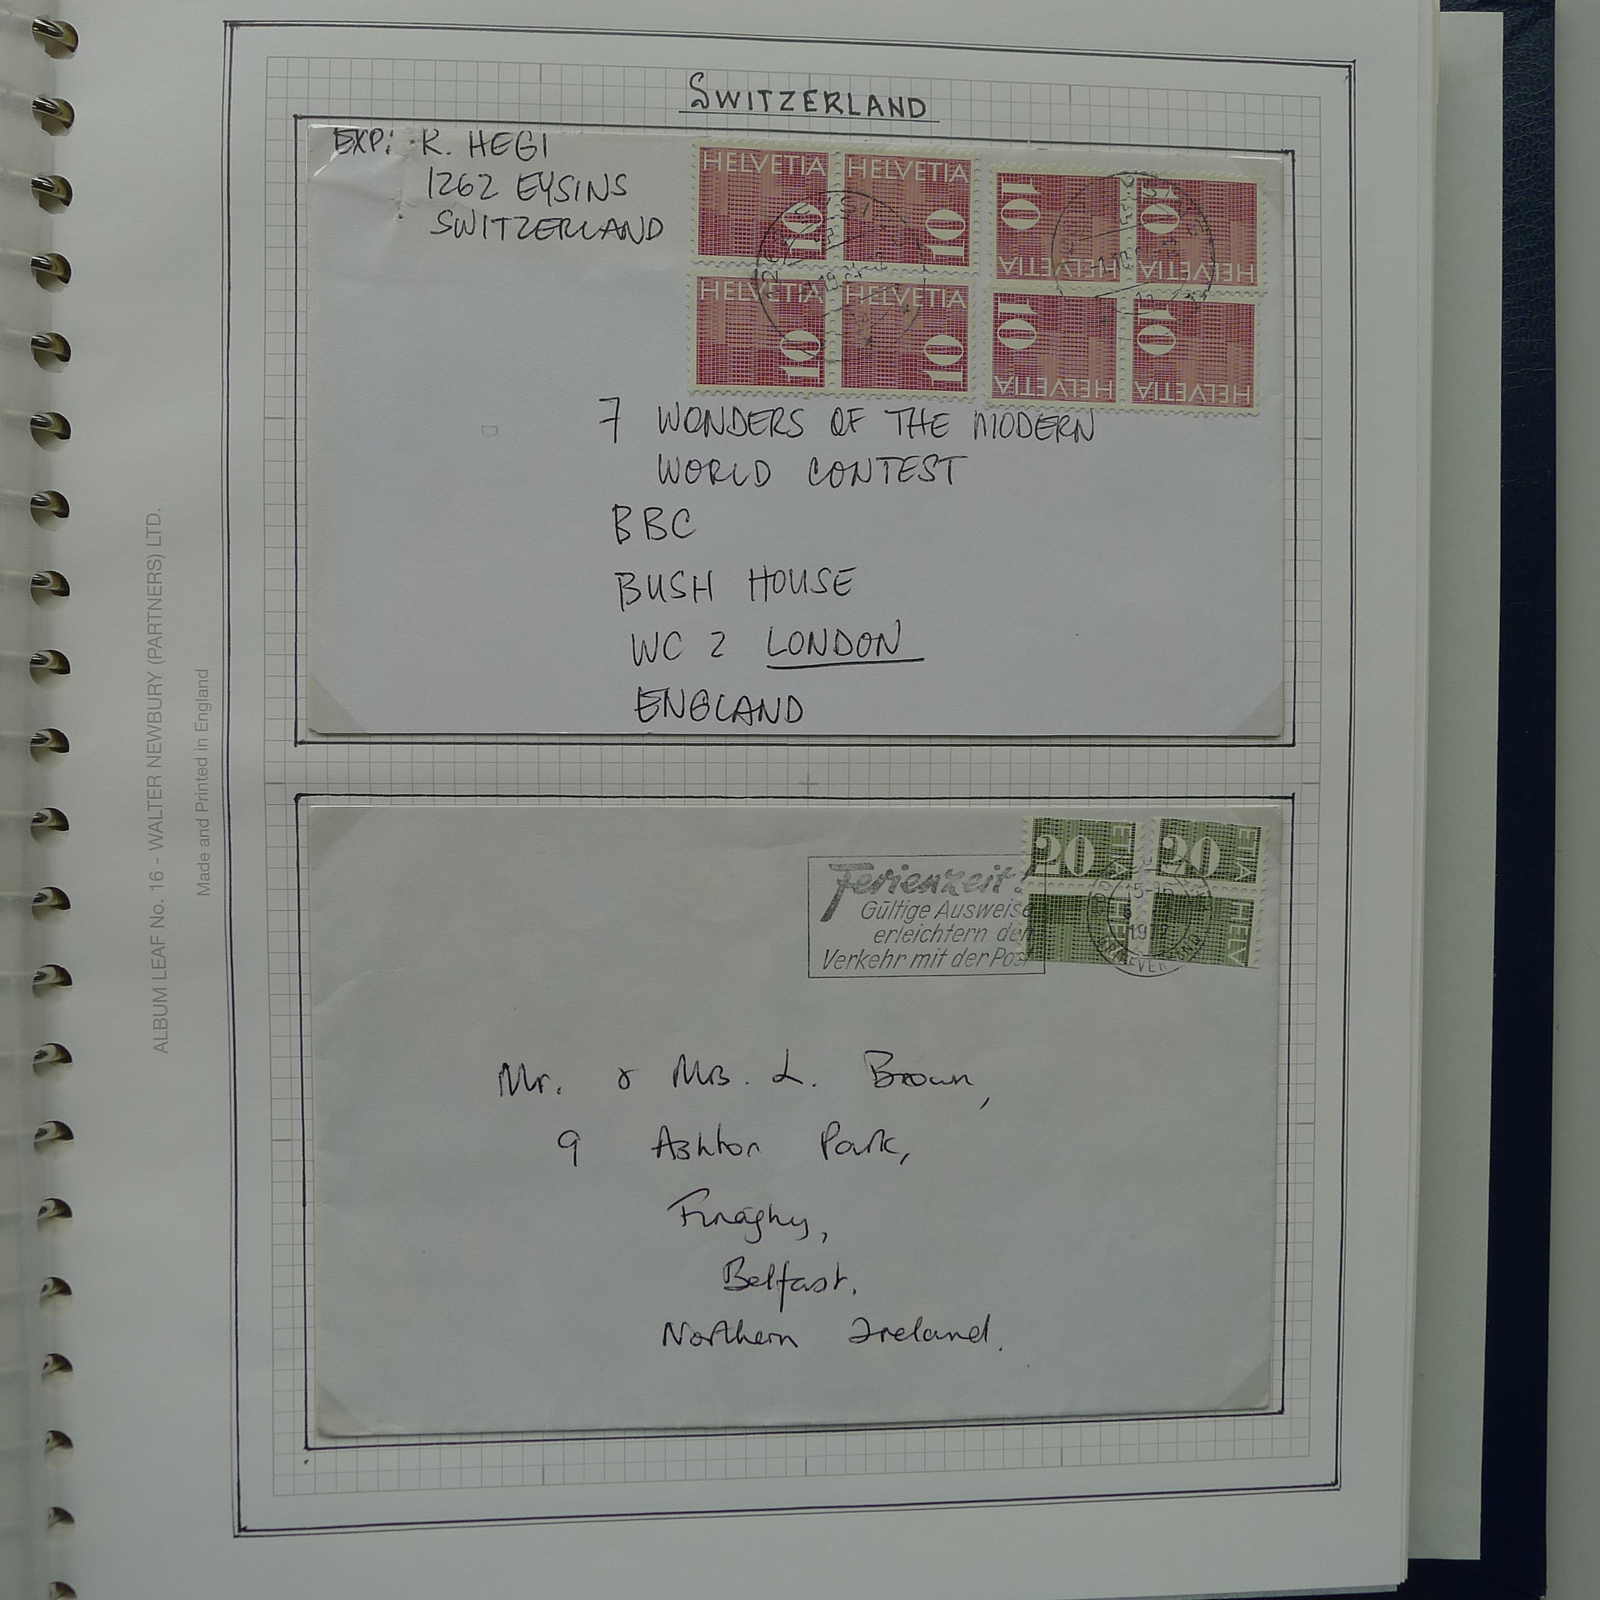 SWITZERLAND
EXP: R. HEGI
1262 EYSINS
SWITZERLAND
HELVETIA HELVETIA
10 10
HELVETIA HELVETIA
10 10
10 10
HELVETIA HELVETIA
10 10
HELVETIA HELVETIA
7 WONDERS OF THE MODERN
WORLD CONTEST
BBC
BUSH HOUSE
WC 2 LONDON
ENGLAND
Ferienzeit!
Gültige Ausweise
erleichtern den
Verkehr mit der Post
20 ETIA 20 ETIA
HELV HELV
15-16
Mr. & Mrs. L. Brown,
9 Ashton Park,
Finaghy,
Belfast.
Northern Ireland.
ALBUM LEAF No. 16 - WALTER NEWBURY (PARTNERS) LTD.
Made and Printed in England